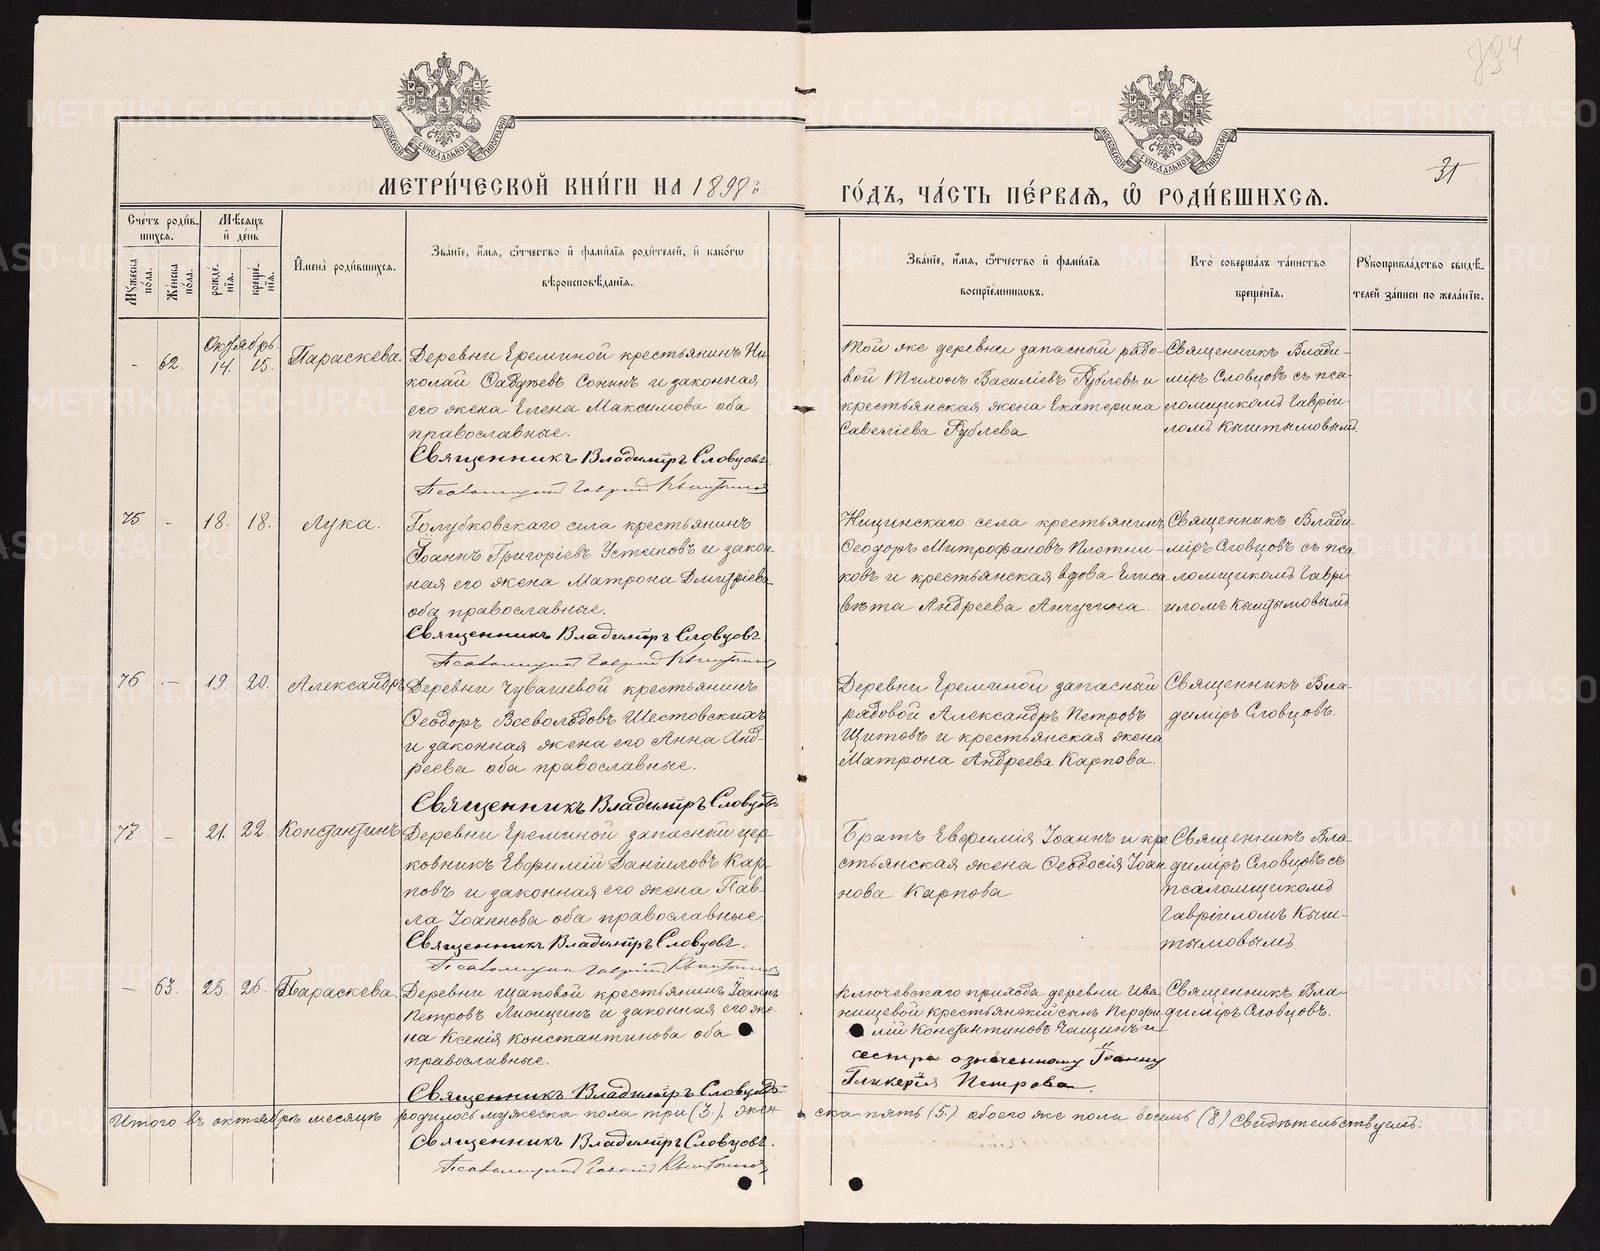 794
31
МОСКОВСКОЙ СѴНОДАЛЬНОЙ ТИПОГРАФІИ
МОСКОВСКОЙ СѴНОДАЛЬНОЙ ТИПОГРАФІИ
МЕТРИ́ЧЕСКОЙ КНИ́ГИ НА 1898 го́
ГО́ДЪ, ЧА́СТЬ ПЕ́РВАѦ, Ѽ РОДИ́ВШИХСѦ.
Сче́тъ роди́в-
шихсѧ.
Мꙋ́жеска по́ла.
Же́нска по́ла.
Мѣ́сѧцъ
и҆ де́нь
рожде́нїѧ.
креще́нїѧ.
И҆мена̀ роди́вшихсѧ.
Зва́нїе, и҆́мѧ, ѻ҆́тчество и҆ фами́лїѧ роди́телей, и҆ како́гѡ
вѣроисповѣ́данїѧ.
Зва́нїе, и҆́мѧ, ѻ҆́тчество и҆ фами́лїѧ
воспрїе́мниковъ.
Кто̀ соверша́лъ та́инство
креще́нїѧ.
Рꙋкоприкла́дство свидѣ́-
телей за́писи по жела́нїю.
Октябрь.
- 62. 14. 15. Параскева.
Деревни Ереминой крестьянинъ Ни-
колай Сонинъ и законная
его жена Елена Максимова оба
православные.
Священникъ Владиміръ Словцовъ.
Псаломщикъ Гавріилъ Кыштымовъ
Той же деревни запасный рядо-
вой Тихонъ Василіевъ Рублевъ и
крестьянская жена Екатерина
Савеліева Рублева.
Священникъ Влади-
міръ Словцовъ съ пса-
ломщикомъ Гавріи-
ломъ Кыштымовымъ.
75 - 18. 18. Лука.
Голубковскаго села крестьянинъ
Іоаннъ Григоріевъ Устиновъ и закон-
ная его жена Матрона Димитріева
оба православные.
Священникъ Владиміръ Словцовъ
Псаломщикъ Гавріилъ Кыштымовъ
Ницинскаго села крестьянинъ
Ѳеодоръ Митрофановъ Плотни-
ковъ и крестьянская вдова Елиса
вета Андреева Анчугина.
Священникъ Влади-
міръ Словцовъ съ пса-
ломщикомъ Гаврі-
иломъ Кыштымовымъ
76 - 19. 20. Александръ
Деревни Чувашевой крестьянинъ
Ѳеодоръ Всеволодовъ Шестовскихъ
и законная жена его Анна Анд-
реева оба православные.
Священникъ Владиміръ Словцовъ
Деревни Ереминой запасный
рядовой Александръ Петровъ
Щитовъ и крестьянская жена
Матрона Андреева Карпова.
Священникъ Вла-
диміръ Словцовъ.
77 - 21. 22. Константинъ
Деревни Ереминой запасный цер-
ковникъ Евфимій Даніиловъ Кар-
повъ и законная его жена Пав-
ла Іоаннова оба православные
Священникъ Владиміръ Словцовъ.
Псаломщикъ Гавріилъ Кыштымовъ
Братъ Евфимія Іоаннъ и кре
стьянская жена Ѳеодосія Іоан
нова Карпова
Священникъ Вла-
диміръ Словцовъ съ
псаломщикомъ
Гавріиломъ Кыш-
тымовымъ
- 63. 25. 26. Параскева.
Деревни Щаповой крестьянинъ Іоаннъ
Петровъ Лисицинъ и законная его же-
на Ксенія Константинова оба
православные.
Священникъ Владиміръ Словцовъ
Ключевскаго прихода деревни Ива
нищевой крестьянскій сынъ Перфи
лій Константиновъ Чащинъ и
сестра означенному Іоанну
Гликерія Петрова.
Священникъ Вла-
диміръ Словцовъ.
Итого въ октябрѣ месяцѣ родилось мужеска пола три (3.) жен-
ска пять (5.) обоего же пола восемь (8) Свидѣтельствуемъ:
Священникъ Владиміръ Словцовъ.
Псаломщикъ Гавріилъ Кыштымовъ
METRIKI.GASO-URAL.RU